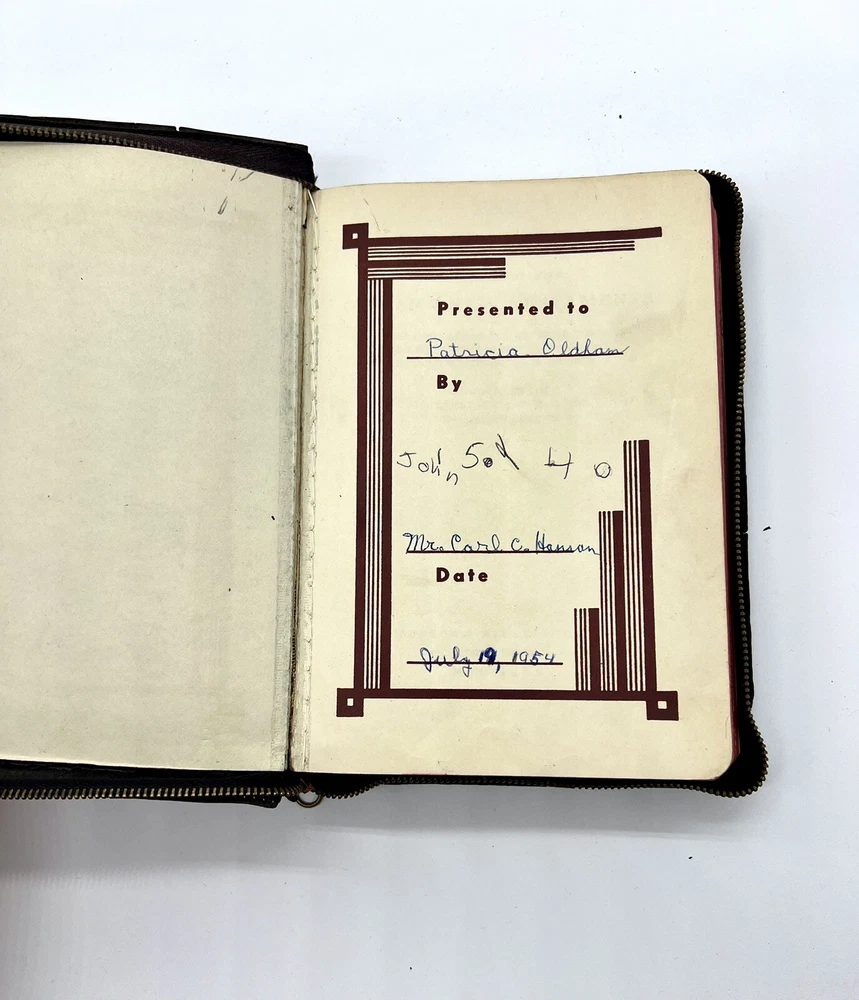 Presented to
Patricia Oldham
By
John 5. 40
Mr. Carl C. Hanson
Date
July 19, 1954